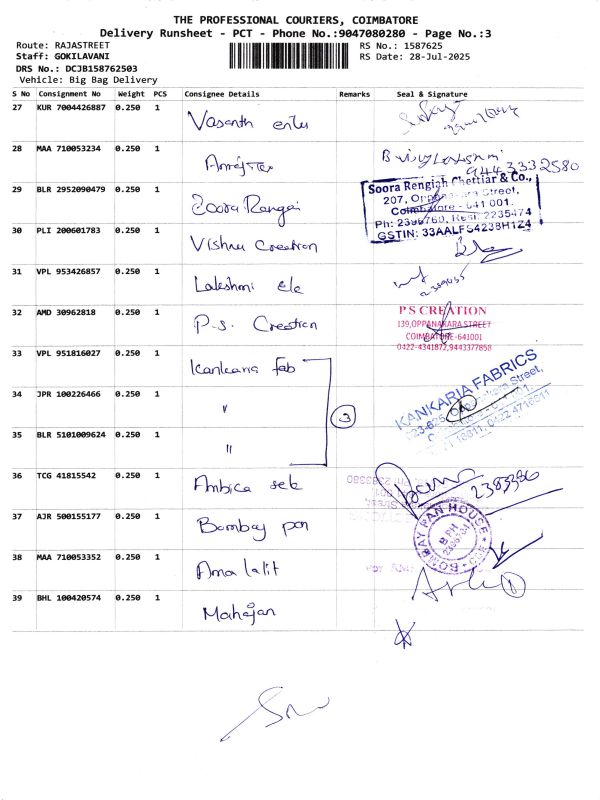 THE PROFESSIONAL COURIERS, COIMBATORE
Delivery Runsheet - PCT - Phone No.:9047080280 - Page No.:3
Route: RAJASTREET
RS No.: 1587625
Staff: GOKILAVANI
RS Date: 28-Jul-2025
DRS No.: DCJB158762503
Vehicle: Big Bag Delivery
S No Consignment No Weight PCS Consignee Details Remarks Seal & Signature
27 KUR 7004426887 0.250 1 Vasanth
28 MAA 710053234 0.250 1
944 3332580
29 BLR 2952090479 0.250 1 Soora Rengai
Soora Rengiah Chettiar & Co.,
207, Oppanakara Street,
Coimbatore - 641 001.
Ph: 2396760, Resi: 2235474
GSTIN: 33AALFS4238H1Z4
30 PLI 200601783 0.250 1 Vishnu Creation
31 VPL 953426857 0.250 1 Lakshmi ele
32 AMD 30962818 0.250 1 P.S. Creation
P S CREATION
139,OPPANAKARA STREET
COIMBATORE-641001
0422-4341872,9443377858
33 VPL 951816027 0.250 1 Kankaria fab
KANKARIA FABRICS
34 JPR 100226466 0.250 1 "
3
35 BLR 5101009624 0.250 1 "
36 TCG 41815542 0.250 1 Ambica selc
2383380
37 AJR 500155177 0.250 1 Bombay pan
BOMBAY PAN HOUSE
CBE
BPH
38 MAA 710053352 0.250 1 Ama lalit
39 BHL 100420574 0.250 1 Mahajan